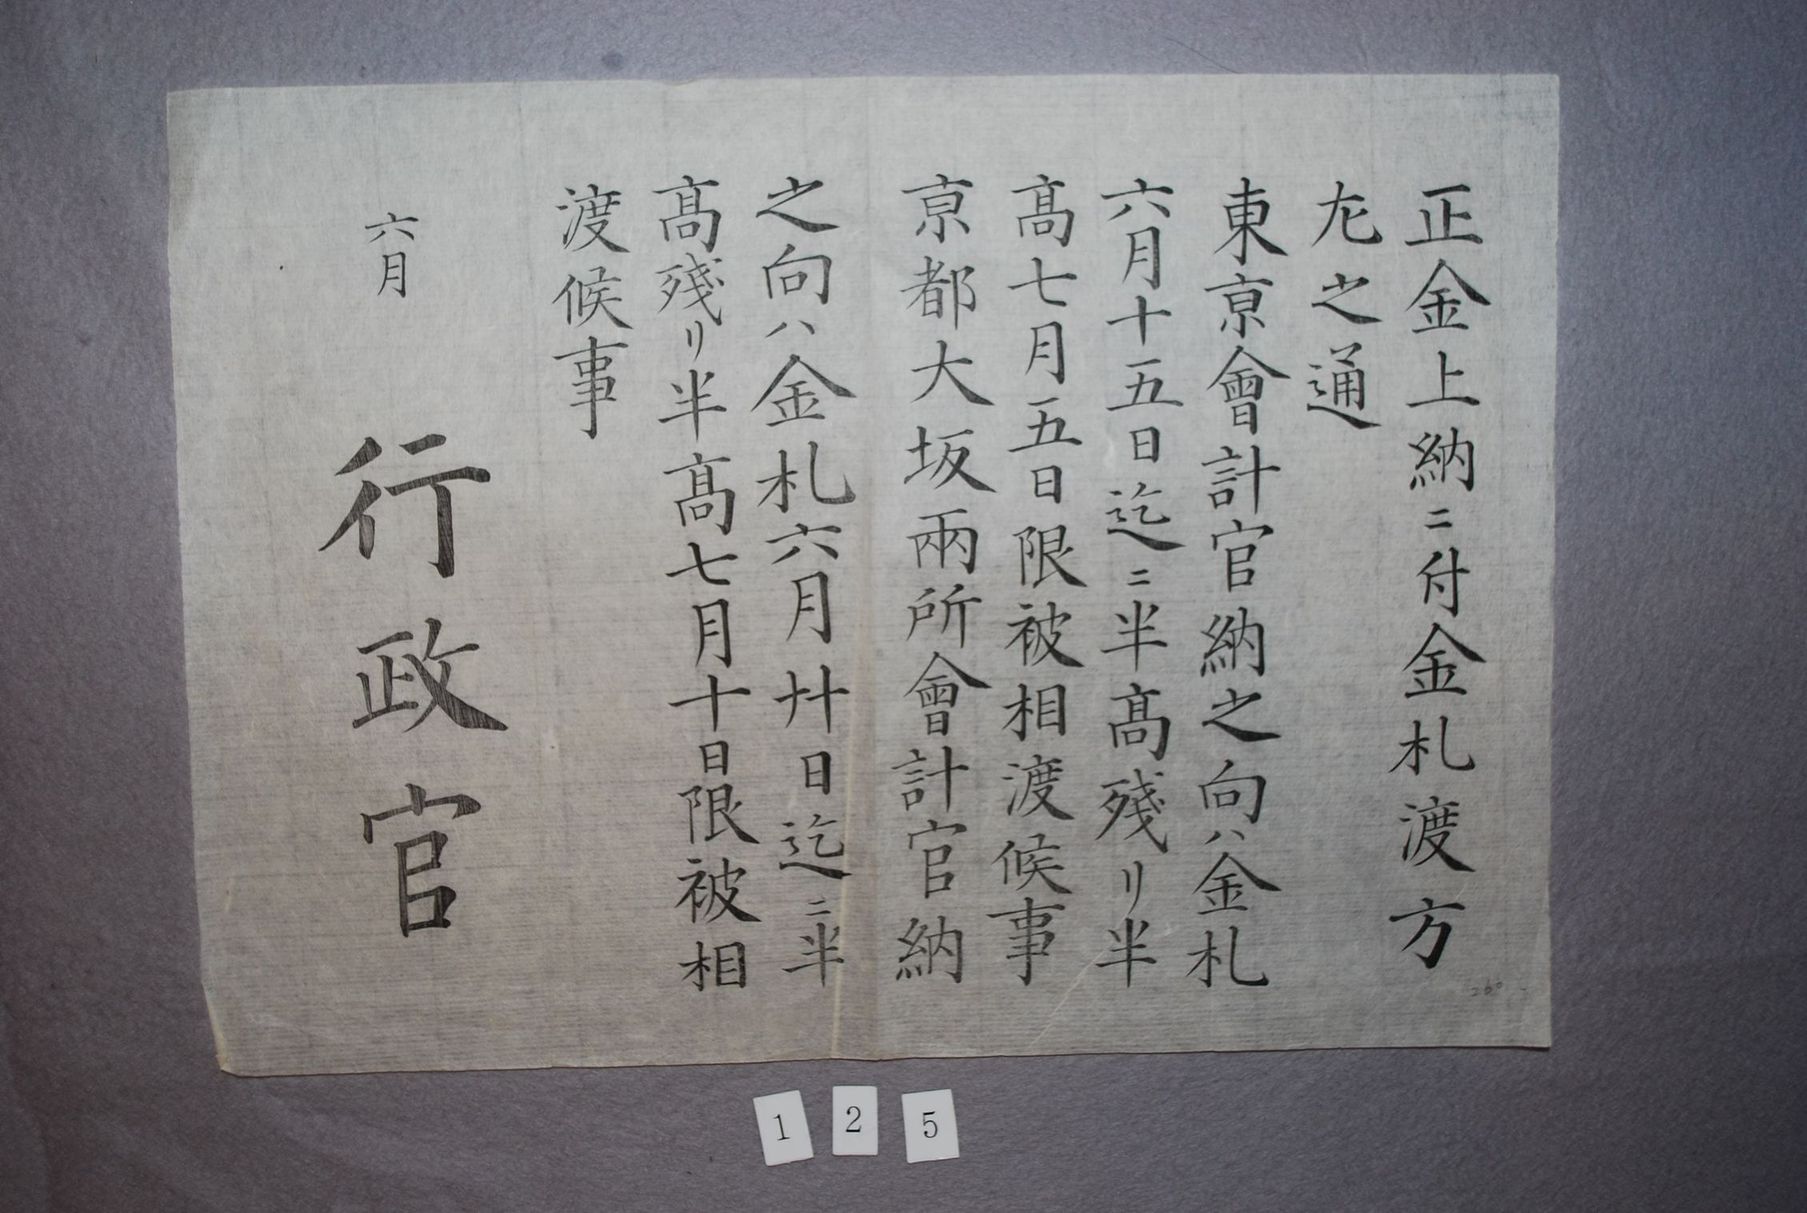 正金上納ニ付金札渡方
左之通
東京會計官納之向ハ金札
六月十五日迄ニ半髙残リ半
髙七月五日限被相渡候事
京都大坂兩所會計官納
之向ハ金札六月廿日迄ニ半
髙残リ半髙七月十日限被相
渡候事
六月
行政官
260
1 2 5